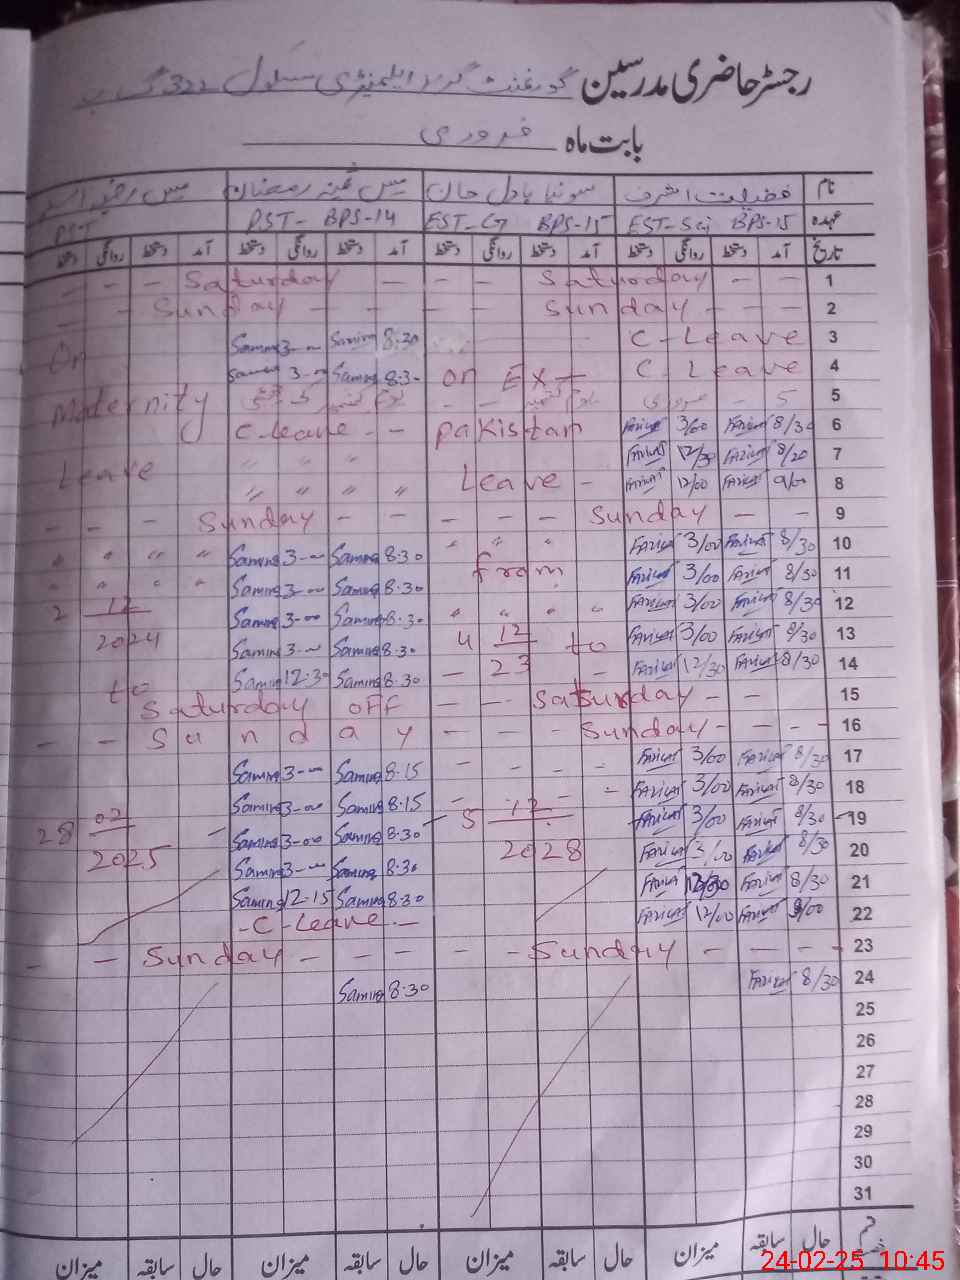 رجسٹر حاضری مدرسین گورنمنٹ گرلز ایلیمنٹری سکول 322 گ ب
بابت ماہ فروری
نام فضیلت اشرف سونیا بادل خان مس ثمینہ رمضان مس
عہدہ EST-Sci BPS-15 EST-G BPS-15 PST- BPS-14 PST
تاریخ آمد دستخط روانگی دستخط آمد دستخط روانگی دستخط آمد دستخط روانگی دستخط آمد دستخط روانگی دستخط
- - - Saturday - - - - Saturday - - 1
- - - Sunday - - - - Sunday - - 2
On Samina 3-00 Samina 8:30 C-Leave 3
Samina 3-00 Samina 8:30 on Ex- C-Leave 4
Maternity یوم کشمیر - - یوم کشمیر فروری - 5 5
C-leave - - Pakistan 3/00 8/30 6
Leave " " " " 12/30 8/20 7
" " " " Leave - 12/00 9/00 8
- - - Sunday - - - - - Sunday - - 9
" " " " Samina 3-00 Samina 8:30 " " " 3/00 8/30 10
" " " " Samina 3-00 Samina 8:30 from 3/00 8/30 11
2 12 Samina 3-00 Samina 8:30 " " " " 3/00 8/30 12
2024 Samina 3-00 Samina 8:30 4 12 to 3/00 8/30 13
to Samina 12:30 Samina 8:30 - 23 - 12/30 8/30 14
Saturday OFF - - - Saturday - - 15
- - Sunday Sunday - - - - 16
Samina 3-00 Samina 8:15 - - - - 3/00 8/30 17
Samina 3-00 Samina 8:15 - - - 3/00 8/30 18
28 02 Samina 3-00 Samina 8:30 5 12 3/00 8/30 19
2025 Samina 3-00 Samina 8:30 2028 3/00 8/30 20
Samina 12-15 Samina 8:30 8/30 21
-C-Leave- 12/00 9/00 22
- - Sunday - - - - - Sunday - - - - 23
Samina 8:30 8/30 24
25
26
27
28
29
30
31
حال سابقہ میزان حال سابقہ میزان حال سابقہ میزان حال سابقہ میزان
24-02-25 10:45